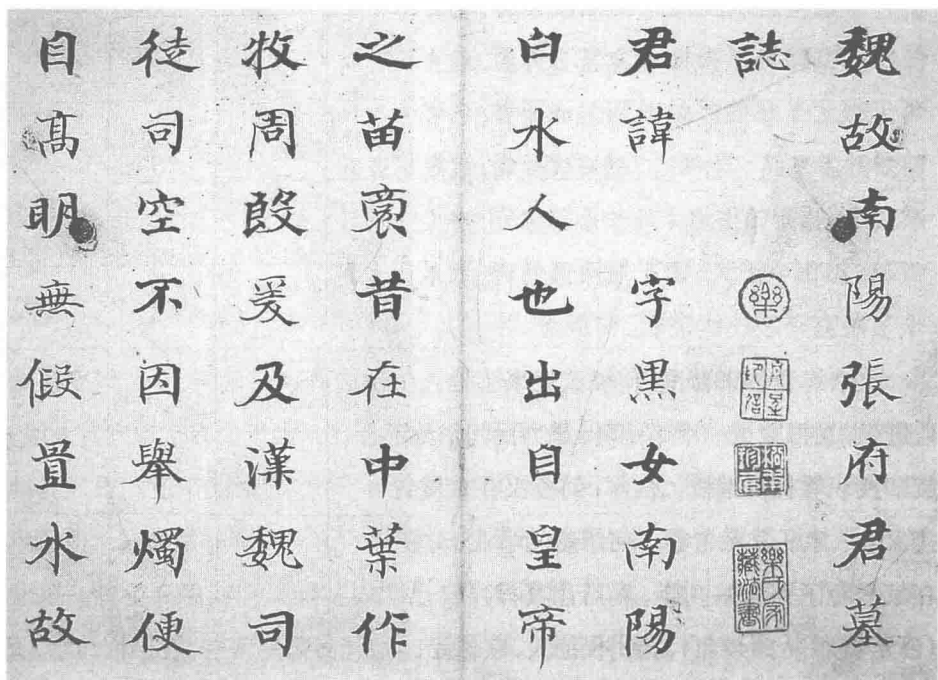 魏故南陽張府君墓
誌
君諱字黑女南陽
白水人也出自皇帝
之苗裔昔在中葉作
牧周殷爰及漢魏司
徒司空不因舉燭便
自高明無假置水故